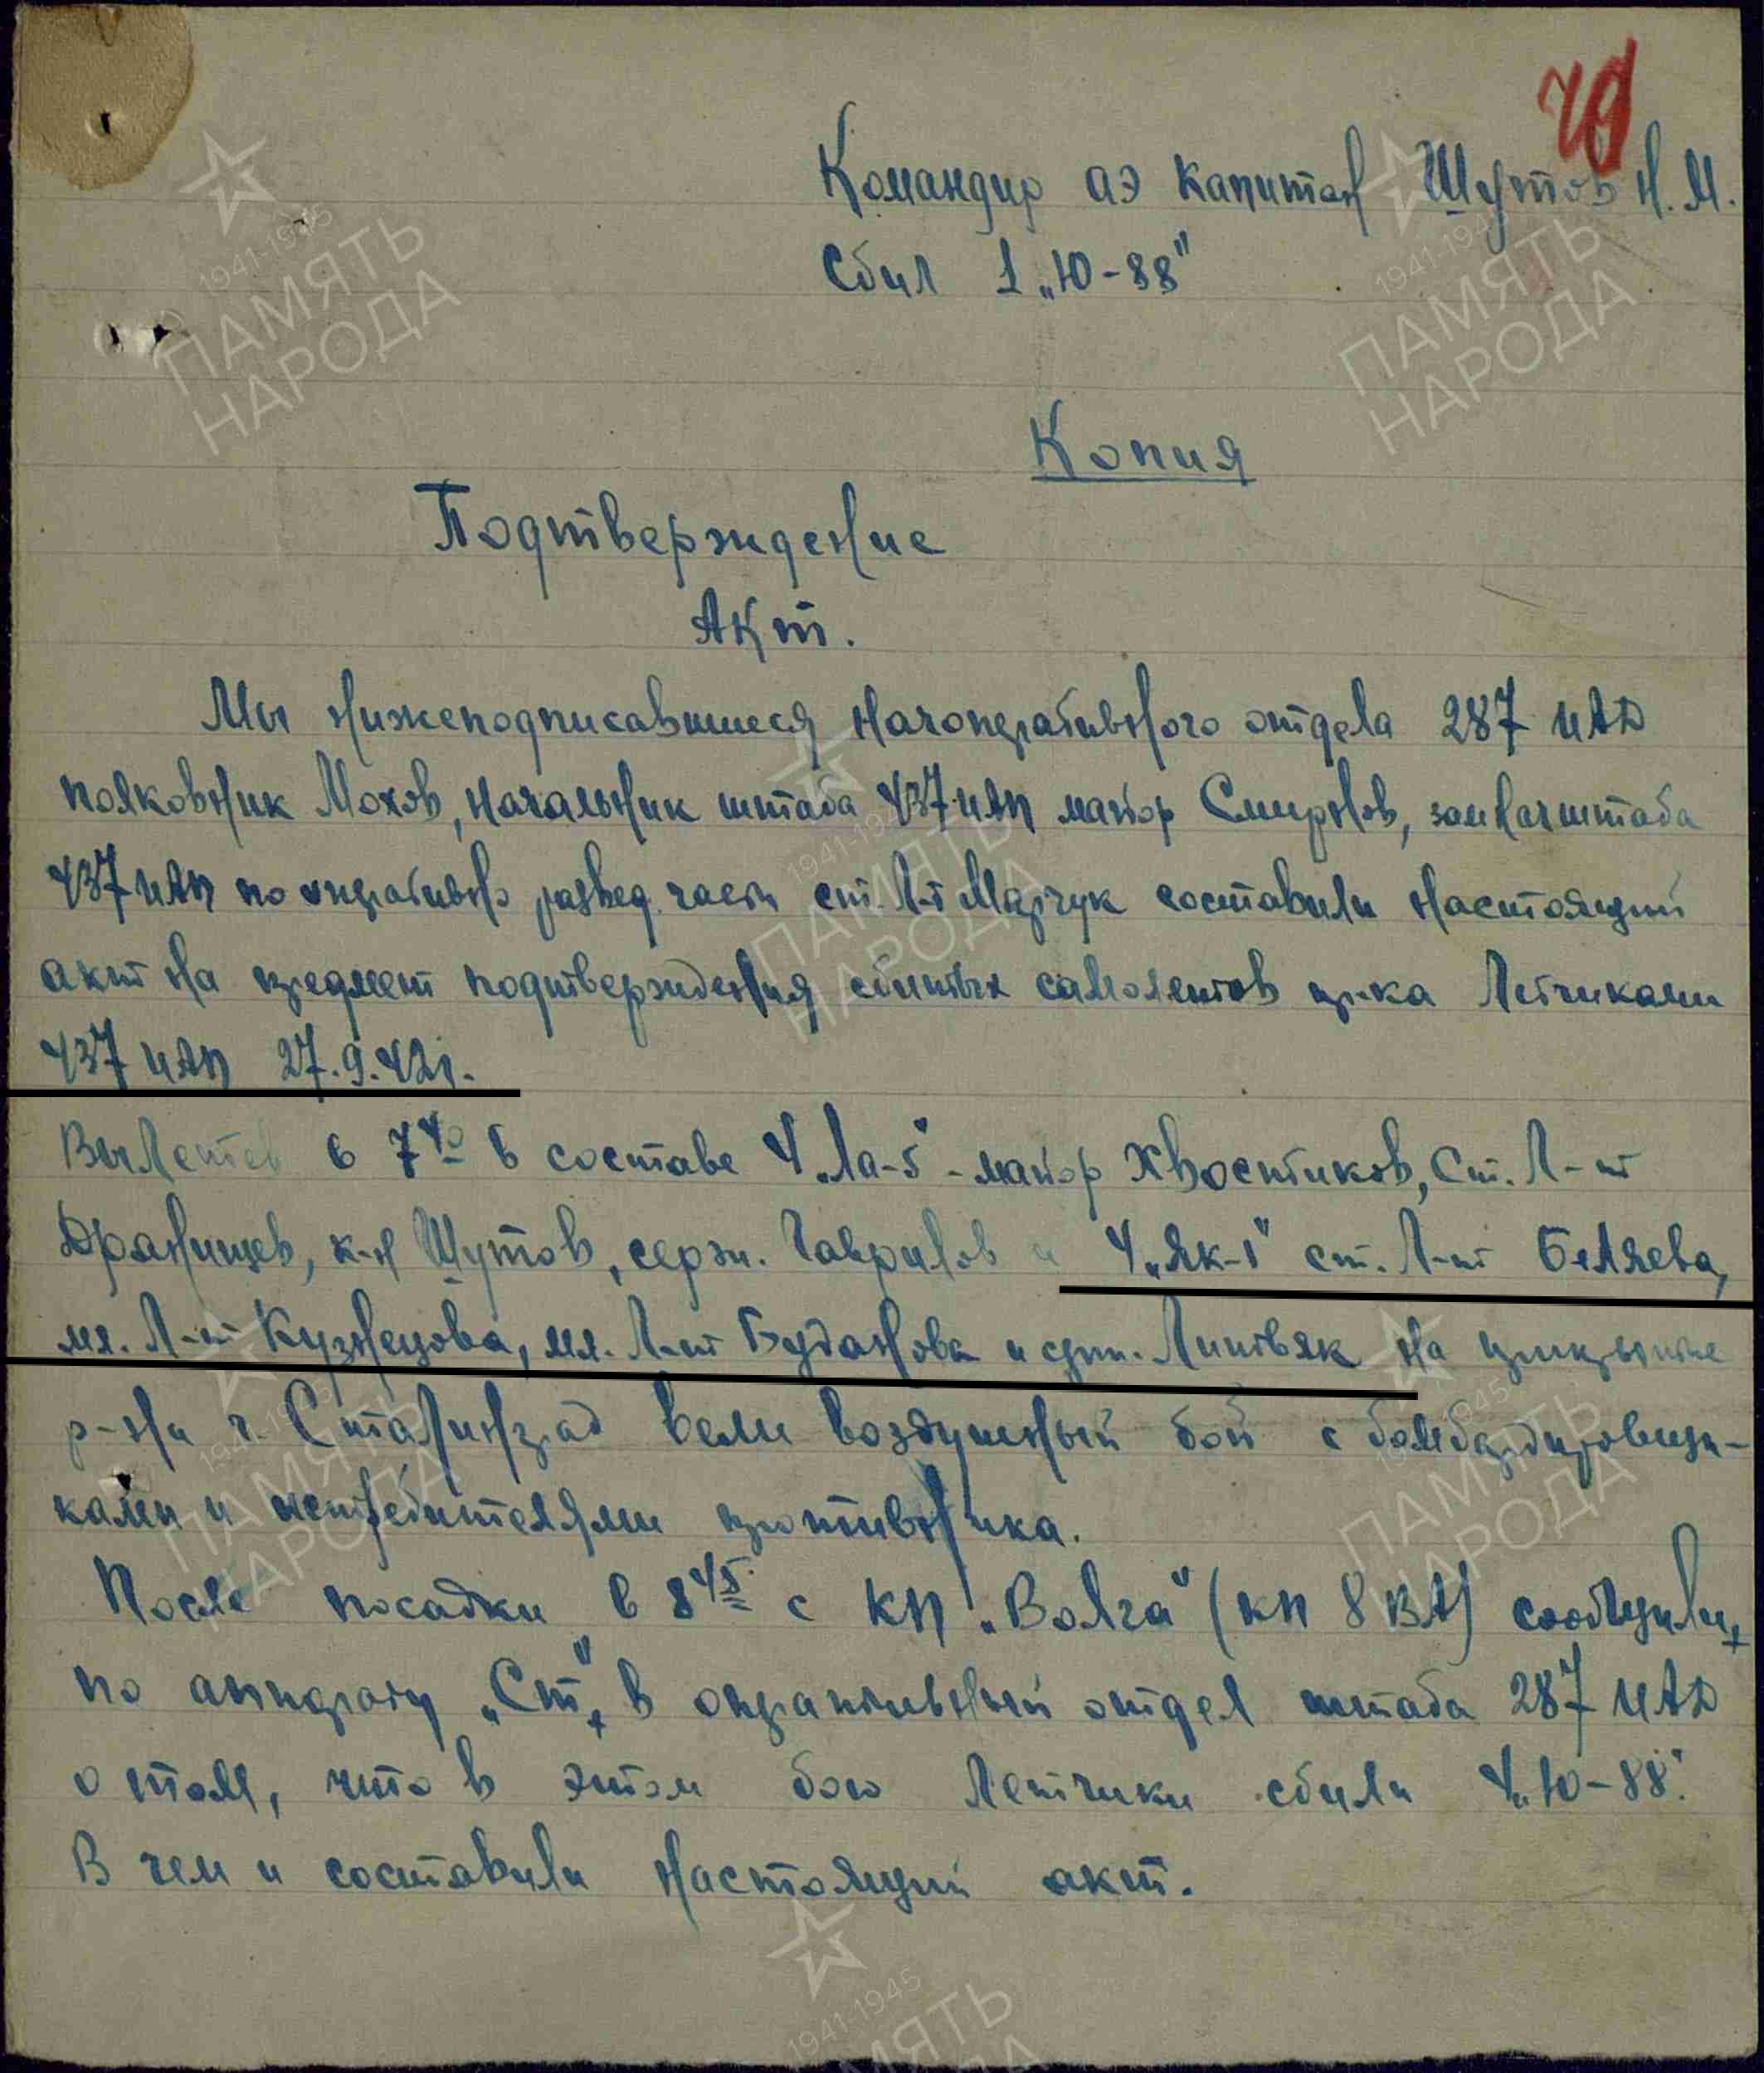 70
Командир АЭ капитан Шутов Н.М.
Сбил 1 „Ю-88"
Копия
Подтверждение
Акт.
Мы нижеподписавшиеся начоперативного отдела 287 ИАД
полковник Мохов, начальник штаба 437 ИАП майор Смирнов, замначштаба
437 ИАП по оперативно развед. части ст. Л-т Марчук составили настоящий
акт на предмет подтверждения сбитых самолетов пр-ка Летчиками
437 ИАП 27.9.42г.
Вылетев в 7⁴⁰ в составе 4 „Ла-5" - майор Хвостиков, Ст. Л-т
Дранищев, к-н Шутов, серж. Гаврилов и 4 „Як-1" ст. Л-т Беляева,
мл. Л-т Кузнецова, мл. Л-т Буданова и серж. Литвяк на прикрытие
р-на г. Сталинград вели воздушный бой с бомбардировщи-
ками и истребителями противника.
После посадки в 8⁴⁵ с КП „Волга" (КП 8 ВА) сообщили,
по аппарату „Ст", в оперативный отдел штаба 287 ИАД
о том, что в этом бою Летчики сбили 4 „Ю-88".
В чем и составили настоящий акт.
1941-1945
ПАМЯТЬ
НАРОДА